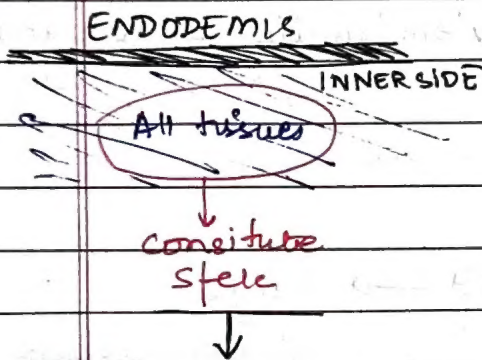 ENDODEMIS
INNER SIDE
All tissues
consitute
stele